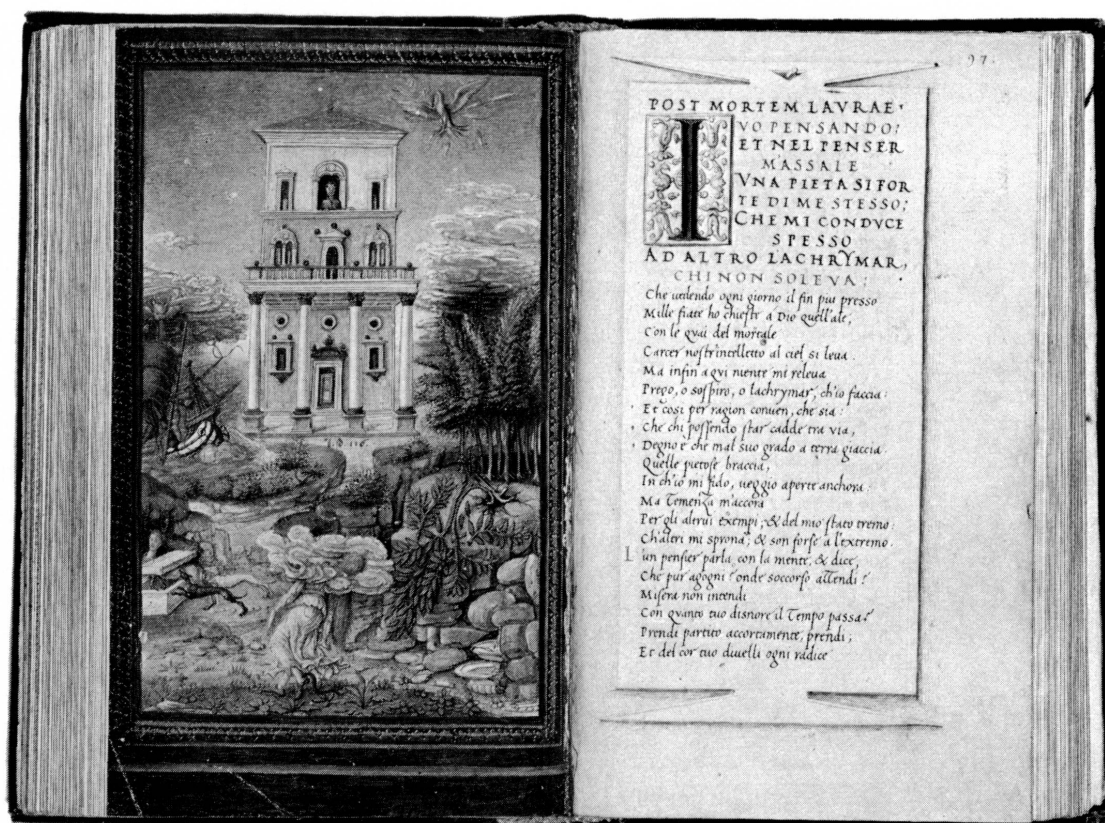 97.
POST MORTEM LAVRAE·
I VO PENSANDO;
ET NEL PENSER
M'ASSALE
VNA PIETA SI FOR
TE DI ME STESSO;
CHE MI CONDVCE
SPESSO
AD ALTRO LACHRYMAR,
CHI NON SOLEVA:
Che uedendo ogni giorno il fin piu presso
Mille fiate ho chieste a Dio quell'ale,
Con le quai del mortale
Carcer nostr'intelletto al ciel si leua.
Ma infin a qui niente mi releua
Prego, o sospiro, o lachrymar, ch'io faccia:
Et cosi per ragion conuen, che sia:
Che chi possendo star cadde tra via,
Degno è che mal suo grado a terra giaccia.
Quelle pietose braccia,
In ch'io mi fido, ueggio aperte anchora:
Ma Temenza m'accora
Per gli altrui exempi; & del mio stato tremo:
Ch'altri mi sprona; & son forse a l'extremo.
L'un penser parla con la mente, & dice,
Che pur agogni? onde soccorso attendi?
Misera non intendi
Con quanto tuo disnore il Tempo passa?
Prendi partito accortamente, prendi;
Et del cor tuo diuelli ogni radice